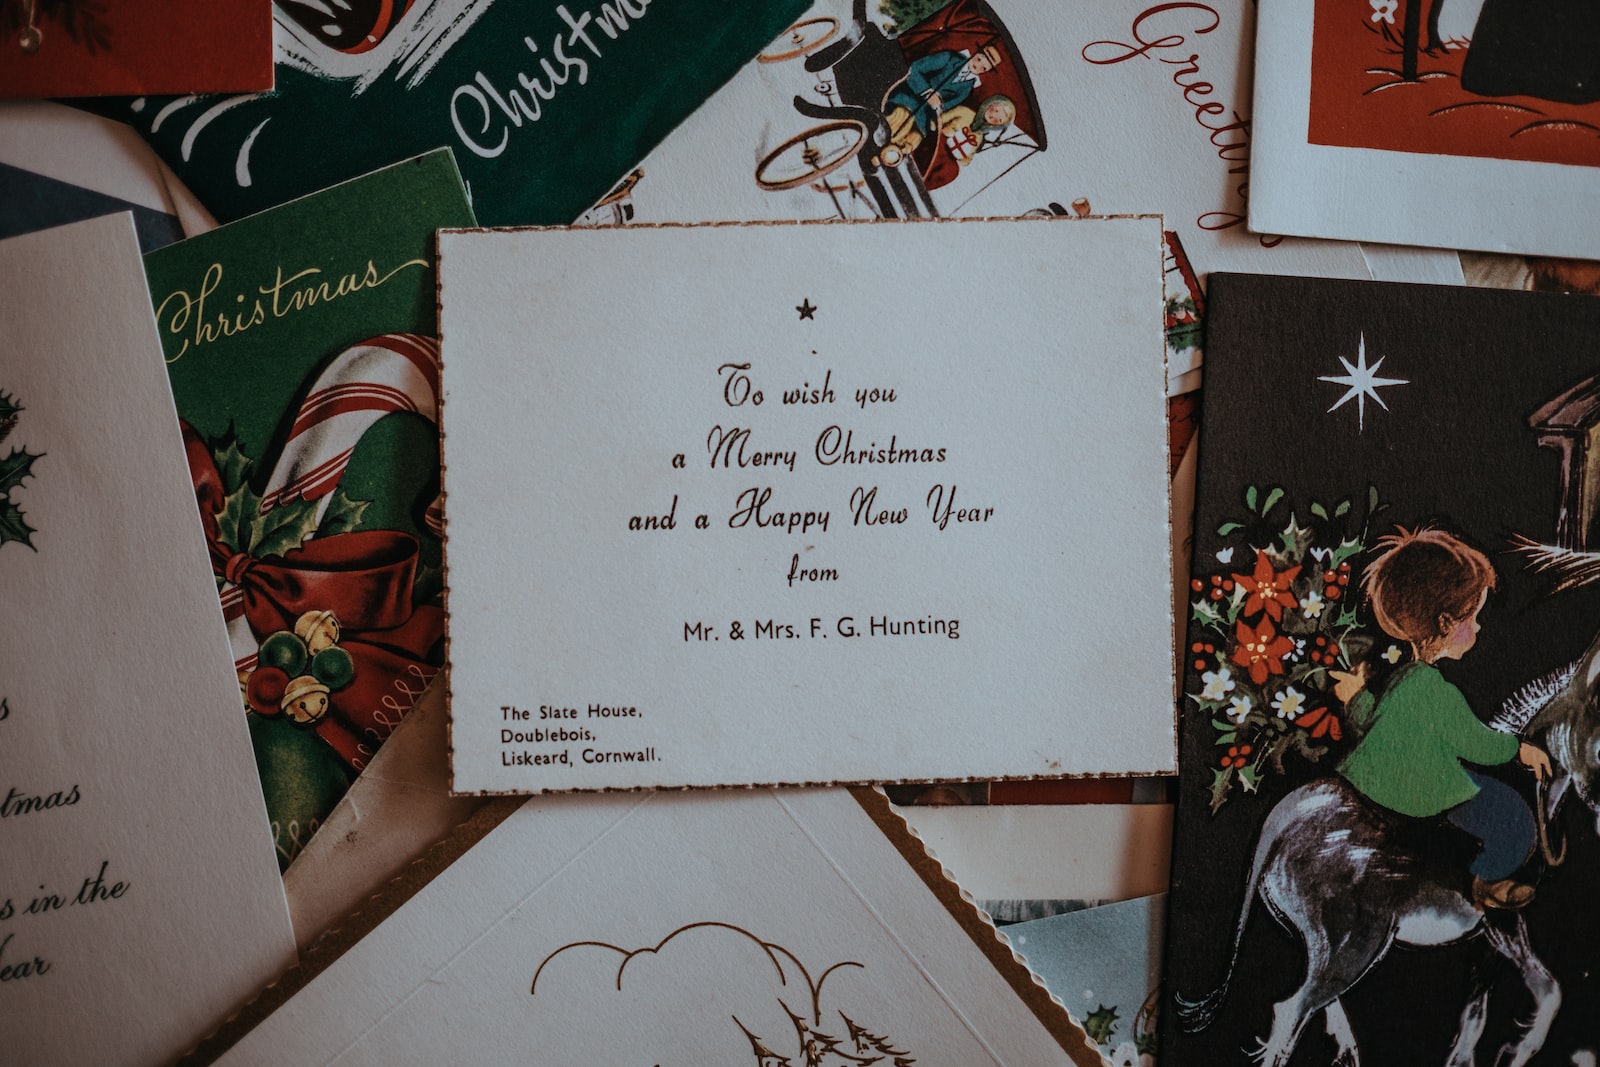 Christm
Greetin
Christmas
To wish you
a Merry Christmas
and a Happy New Year
from
Mr. & Mrs. F. G. Hunting
The Slate House,
Doublebois,
Liskeard, Cornwall.
s
tmas
s in the
ear